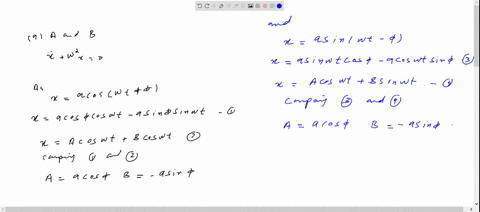 (a) A and B
ẍ + w²x = 0
As
x = a cos(wt + ϕ)
x = a cosϕ coswt - a sinϕ sinwt - ①
x = A coswt + B coswt ②
comparing ① and ②
A = a cosϕ B = -a sinϕ
and
x = a sin(wt - ϕ)
x = a sinwt cosϕ - a coswt sinϕ ③
x = A coswt + B sinwt - ④
Comparing ③ and ④
A = a cosϕ B = -a sinϕ